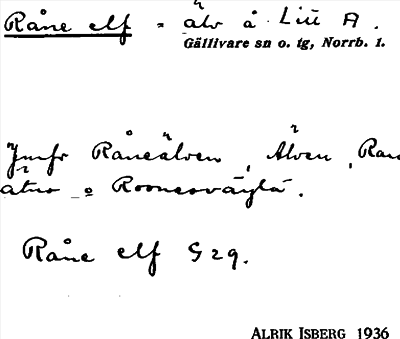 Råne elf = älv å Lill A.
Gällivare sn o. tg, Norrb. l.
Jmfr Råneälven, Älven, Ran
ätno o Rooneoväylä.
Råne elf S 29.
ALRIK ISBERG 1936